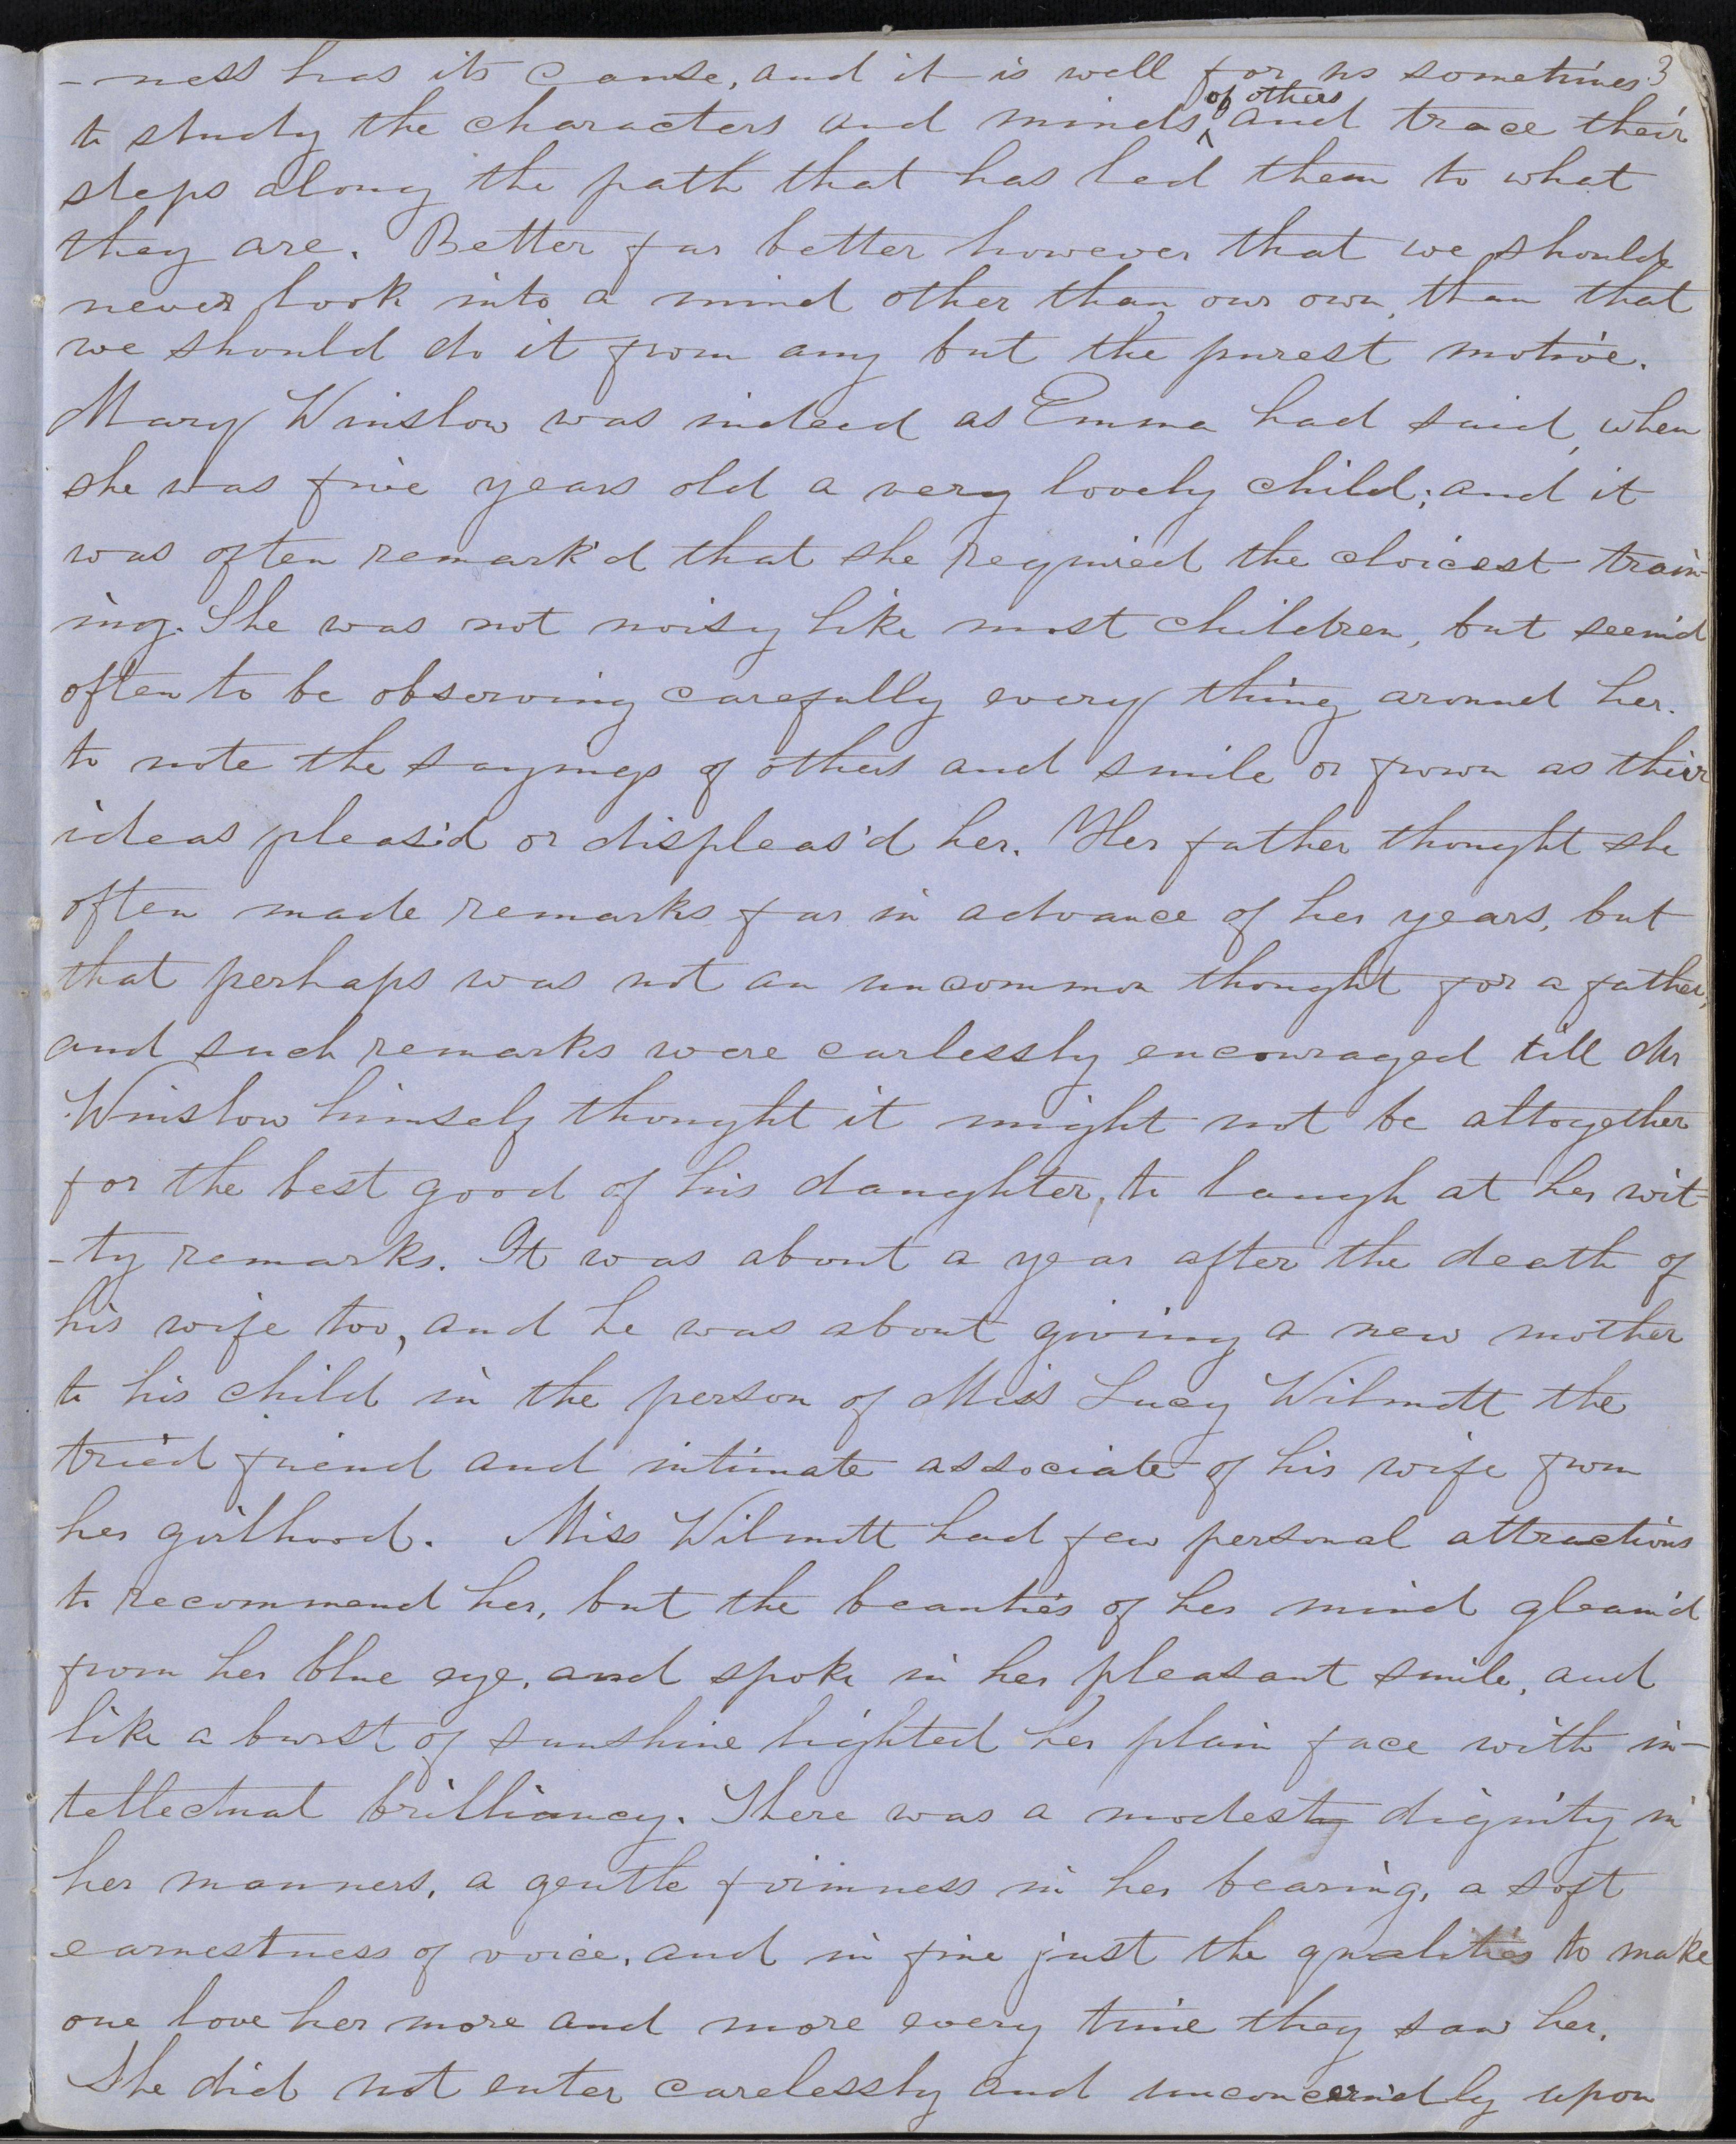 3
-ness has its cause, and it is well for us sometimes
to study the characters and minds ^of others and trace their
steps along the path that has led them to what
they are. Better far better however that we should
never look into a mind other than our own, than that
we should do it from any but the purest motive.
Mary Winslow was indeed as Emma had said, when
she was five years old a very lovely child; and it
was often remark'd that she required the choicest train-
ing. She was not noisy like most children, but seem'd
often to be observing carefully every thing around her.
to note the sayings of others and smile or frown as their
ideas pleas'd or displeas'd her. Her father thought she
often made remarks far in advance of her years, but
that perhaps was not an uncommon thought for a father,
and such remarks were carlessly encouraged till Mr
Winslow himself thought it might not be altogether
for the best good of his daughter, to laugh at her wit-
-ty remarks. It was about a year after the death of
his wife too, and he was about giving a new mother
to his child in the person of Miss Lucy Wilmott the
tried friend and intimate associate of his wife from
her girlhood. Miss Wilmott had few personal attractions
to recommend her, but the beauties of her mind gleam'd
from her blue eye, and spoke in her pleasant smile, and
like a burst of sunshine lighted her plain face with in-
tellectual brilliancy. There was a modest dignity in
her manners, a gentle firmness in her bearing, a soft
earnestness of voice, and in fine just the qualities to make
one love her more and more every time they saw her.
She did not enter carelessly and unconcern'dly upon